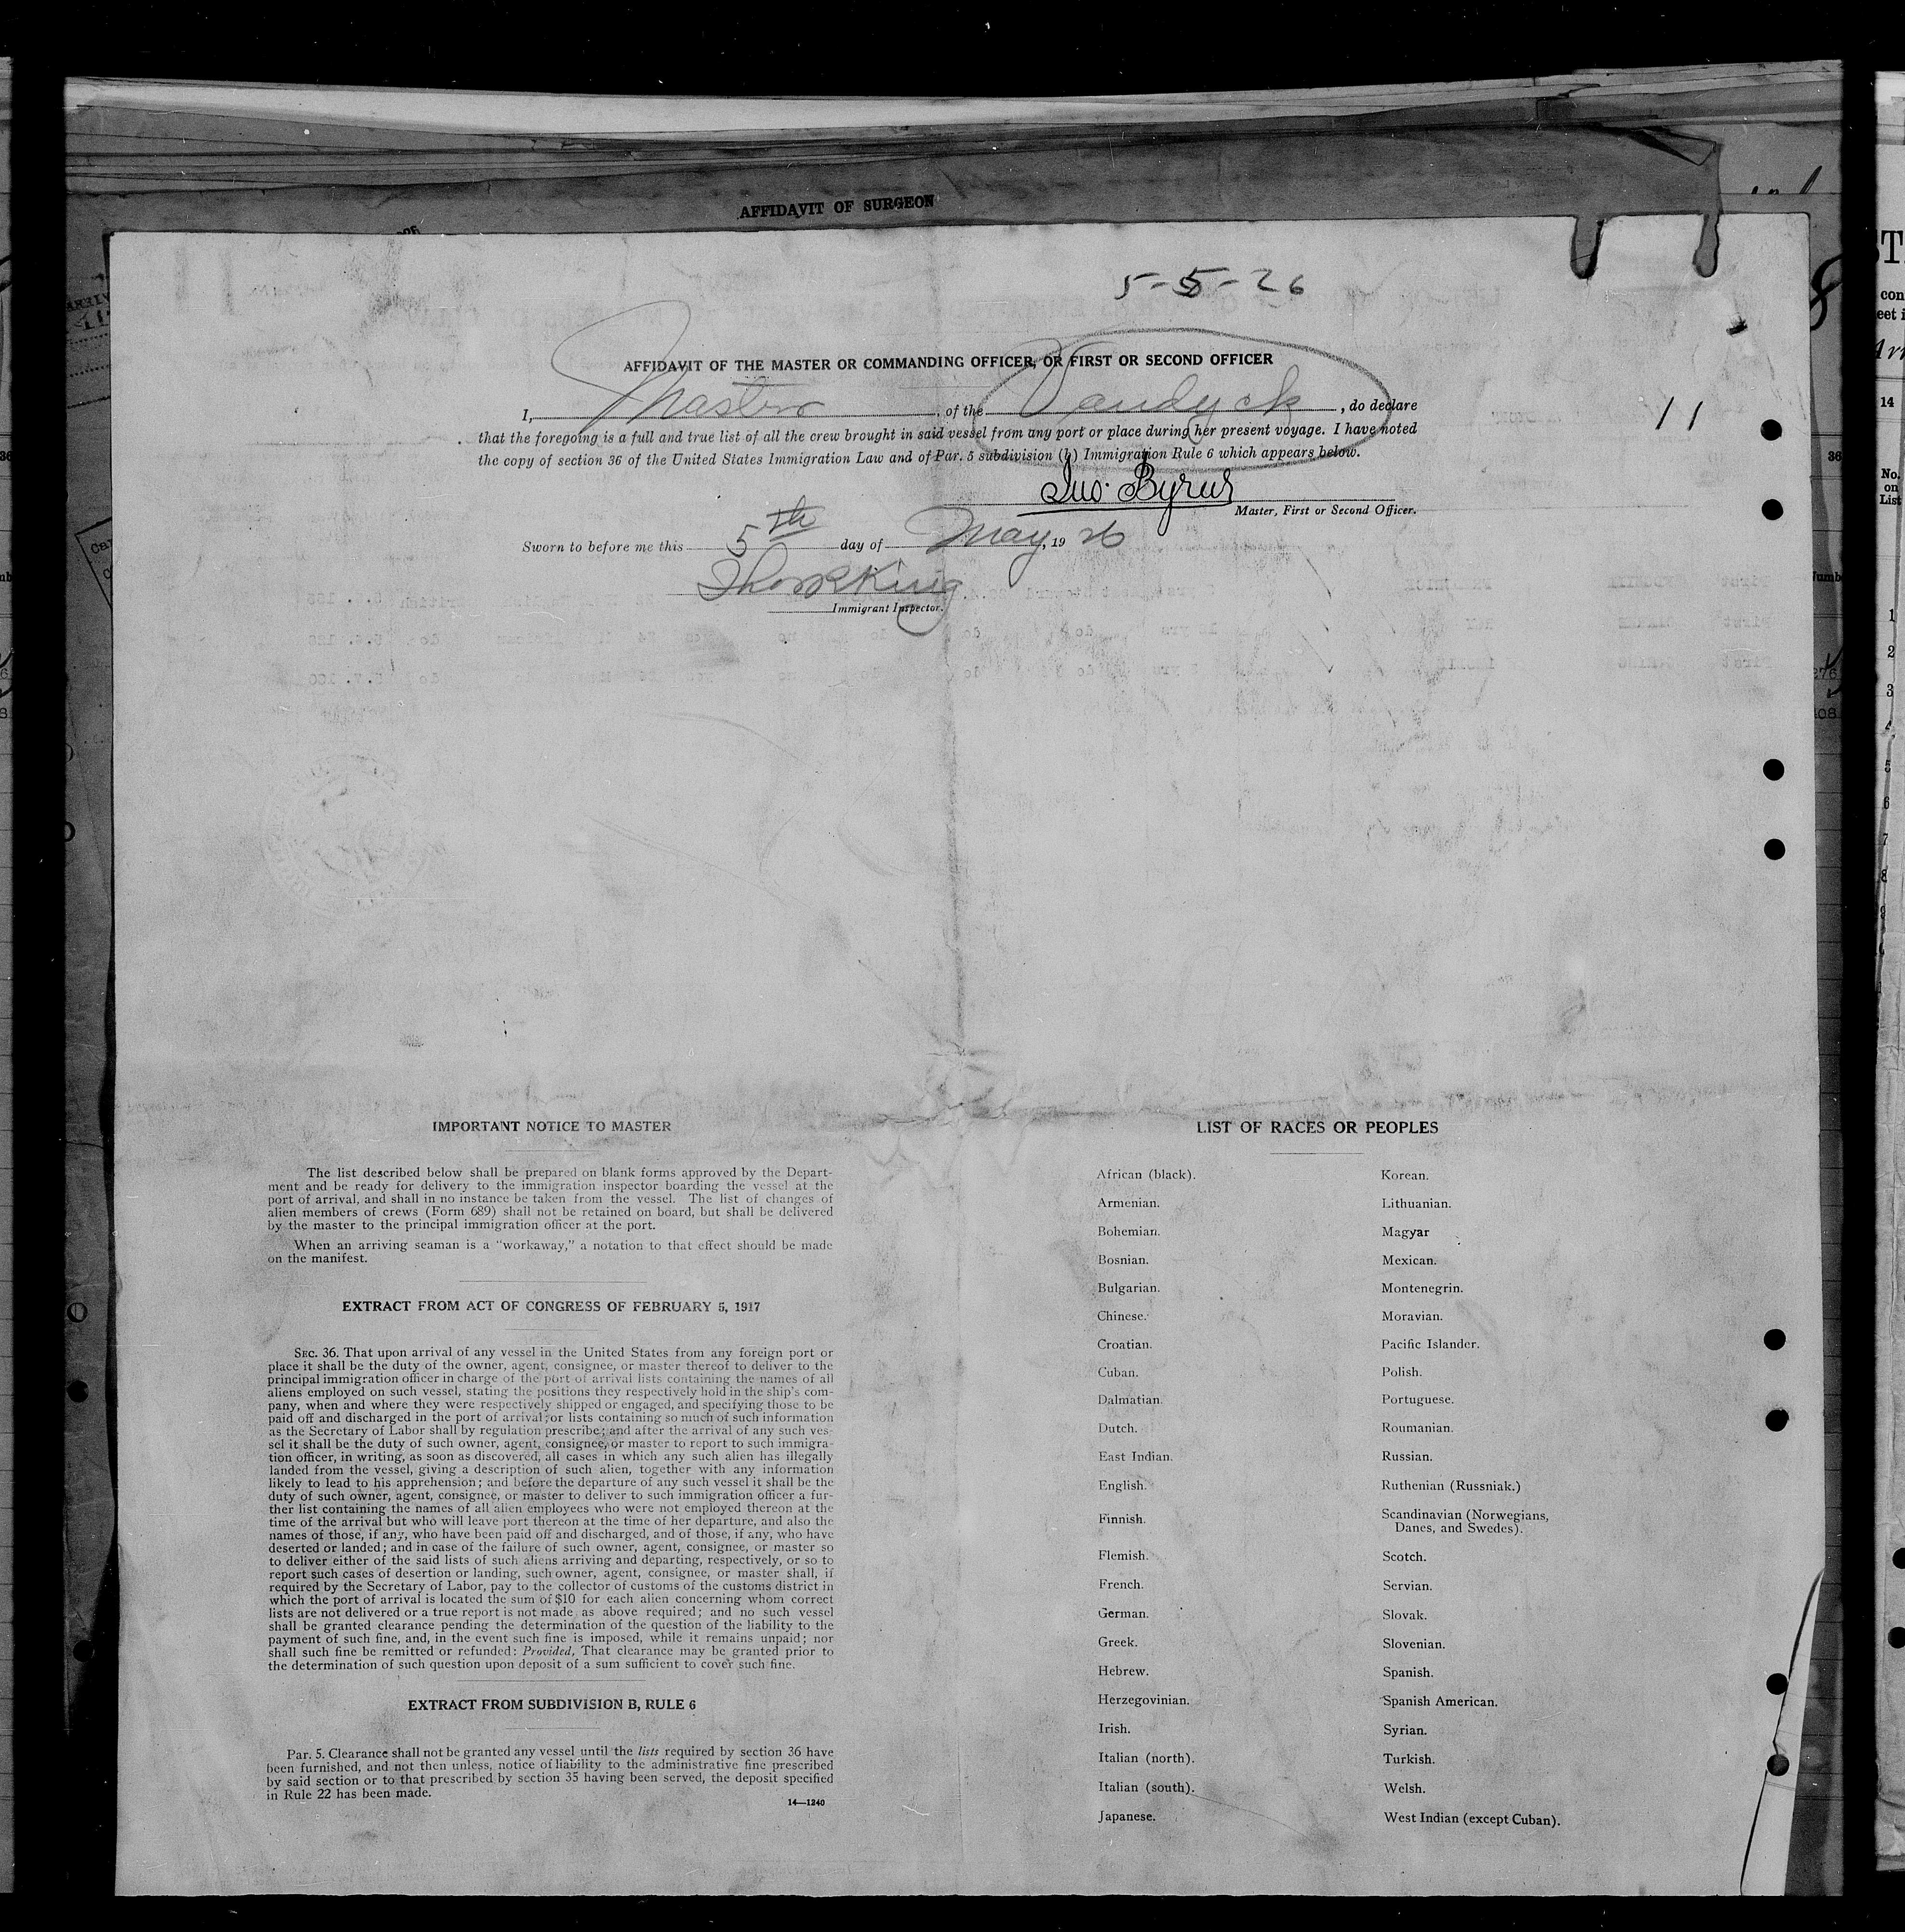 AFFIDAVIT OF SURGEON
5-5-26
AFFIDAVIT OF THE MASTER OR COMMANDING OFFICER, OR FIRST OR SECOND OFFICER
I, Master, of the Vandyck, do declare
11
that the foregoing is a full and true list of all the crew brought in said vessel from any port or place during her present voyage. I have noted
the copy of section 36 of the United States Immigration Law and of Par. 5 subdivision (b) Immigration Rule 6 which appears below.
Jno. Byrne
Master, First or Second Officer.
Sworn to before me this 5th day of May, 19 26
King
Immigrant Inspector.
IMPORTANT NOTICE TO MASTER
The list described below shall be prepared on blank forms approved by the Depart-
ment and be ready for delivery to the immigration inspector boarding the vessel at the
port of arrival, and shall in no instance be taken from the vessel. The list of changes of
alien members of crews (Form 689) shall not be retained on board, but shall be delivered
by the master to the principal immigration officer at the port.
When an arriving seaman is a "workaway," a notation to that effect should be made
on the manifest.
EXTRACT FROM ACT OF CONGRESS OF FEBRUARY 5, 1917
SEC. 36. That upon arrival of any vessel in the United States from any foreign port or
place it shall be the duty of the owner, agent, consignee, or master thereof to deliver to the
principal immigration officer in charge of the port of arrival lists containing the names of all
aliens employed on such vessel, stating the positions they respectively hold in the ship's com-
pany, when and where they were respectively shipped or engaged, and specifying those to be
paid off and discharged in the port of arrival; or lists containing so much of such information
as the Secretary of Labor shall by regulation prescribe; and after the arrival of any such ves-
sel it shall be the duty of such owner, agent, consignee, or master to report to such immigra-
tion officer, in writing, as soon as discovered, all cases in which any such alien has illegally
landed from the vessel, giving a description of such alien, together with any information
likely to lead to his apprehension; and before the departure of any such vessel it shall be the
duty of such owner, agent, consignee, or master to deliver to such immigration officer a fur-
ther list containing the names of all alien employees who were not employed thereon at the
time of the arrival but who will leave port thereon at the time of her departure, and also the
names of those, if any, who have been paid off and discharged, and of those, if any, who have
deserted or landed; and in case of the failure of such owner, agent, consignee, or master so
to deliver either of the said lists of such aliens arriving and departing, respectively, or so to
report such cases of desertion or landing, such owner, agent, consignee, or master shall, if
required by the Secretary of Labor, pay to the collector of customs of the customs district in
which the port of arrival is located the sum of $10 for each alien concerning whom correct
lists are not delivered or a true report is not made as above required; and no such vessel
shall be granted clearance pending the determination of the question of the liability to the
payment of such fine, and, in the event such fine is imposed, while it remains unpaid; nor
shall such fine be remitted or refunded: Provided, That clearance may be granted prior to
the determination of such question upon deposit of a sum sufficient to cover such fine.
EXTRACT FROM SUBDIVISION B, RULE 6
Par. 5. Clearance shall not be granted any vessel until the lists required by section 36 have
been furnished, and not then unless, notice of liability to the administrative fine prescribed
by said section or to that prescribed by section 35 having been served, the deposit specified
in Rule 22 has been made.
14—1240
LIST OF RACES OR PEOPLES
African (black).
Armenian.
Bohemian.
Bosnian.
Bulgarian.
Chinese.
Croatian.
Cuban.
Dalmatian.
Dutch.
East Indian.
English.
Finnish.
Flemish.
French.
German.
Greek.
Hebrew.
Herzegovinian.
Irish.
Italian (north).
Italian (south).
Japanese.
Korean.
Lithuanian.
Magyar
Mexican.
Montenegrin.
Moravian.
Pacific Islander.
Polish.
Portuguese.
Roumanian.
Russian.
Ruthenian (Russniak.)
Scandinavian (Norwegians,
Danes, and Swedes).
Scotch.
Servian.
Slovak.
Slovenian.
Spanish.
Spanish American.
Syrian.
Turkish.
Welsh.
West Indian (except Cuban).
14
No.
on
List
1
2
3
4
5
6
7
8